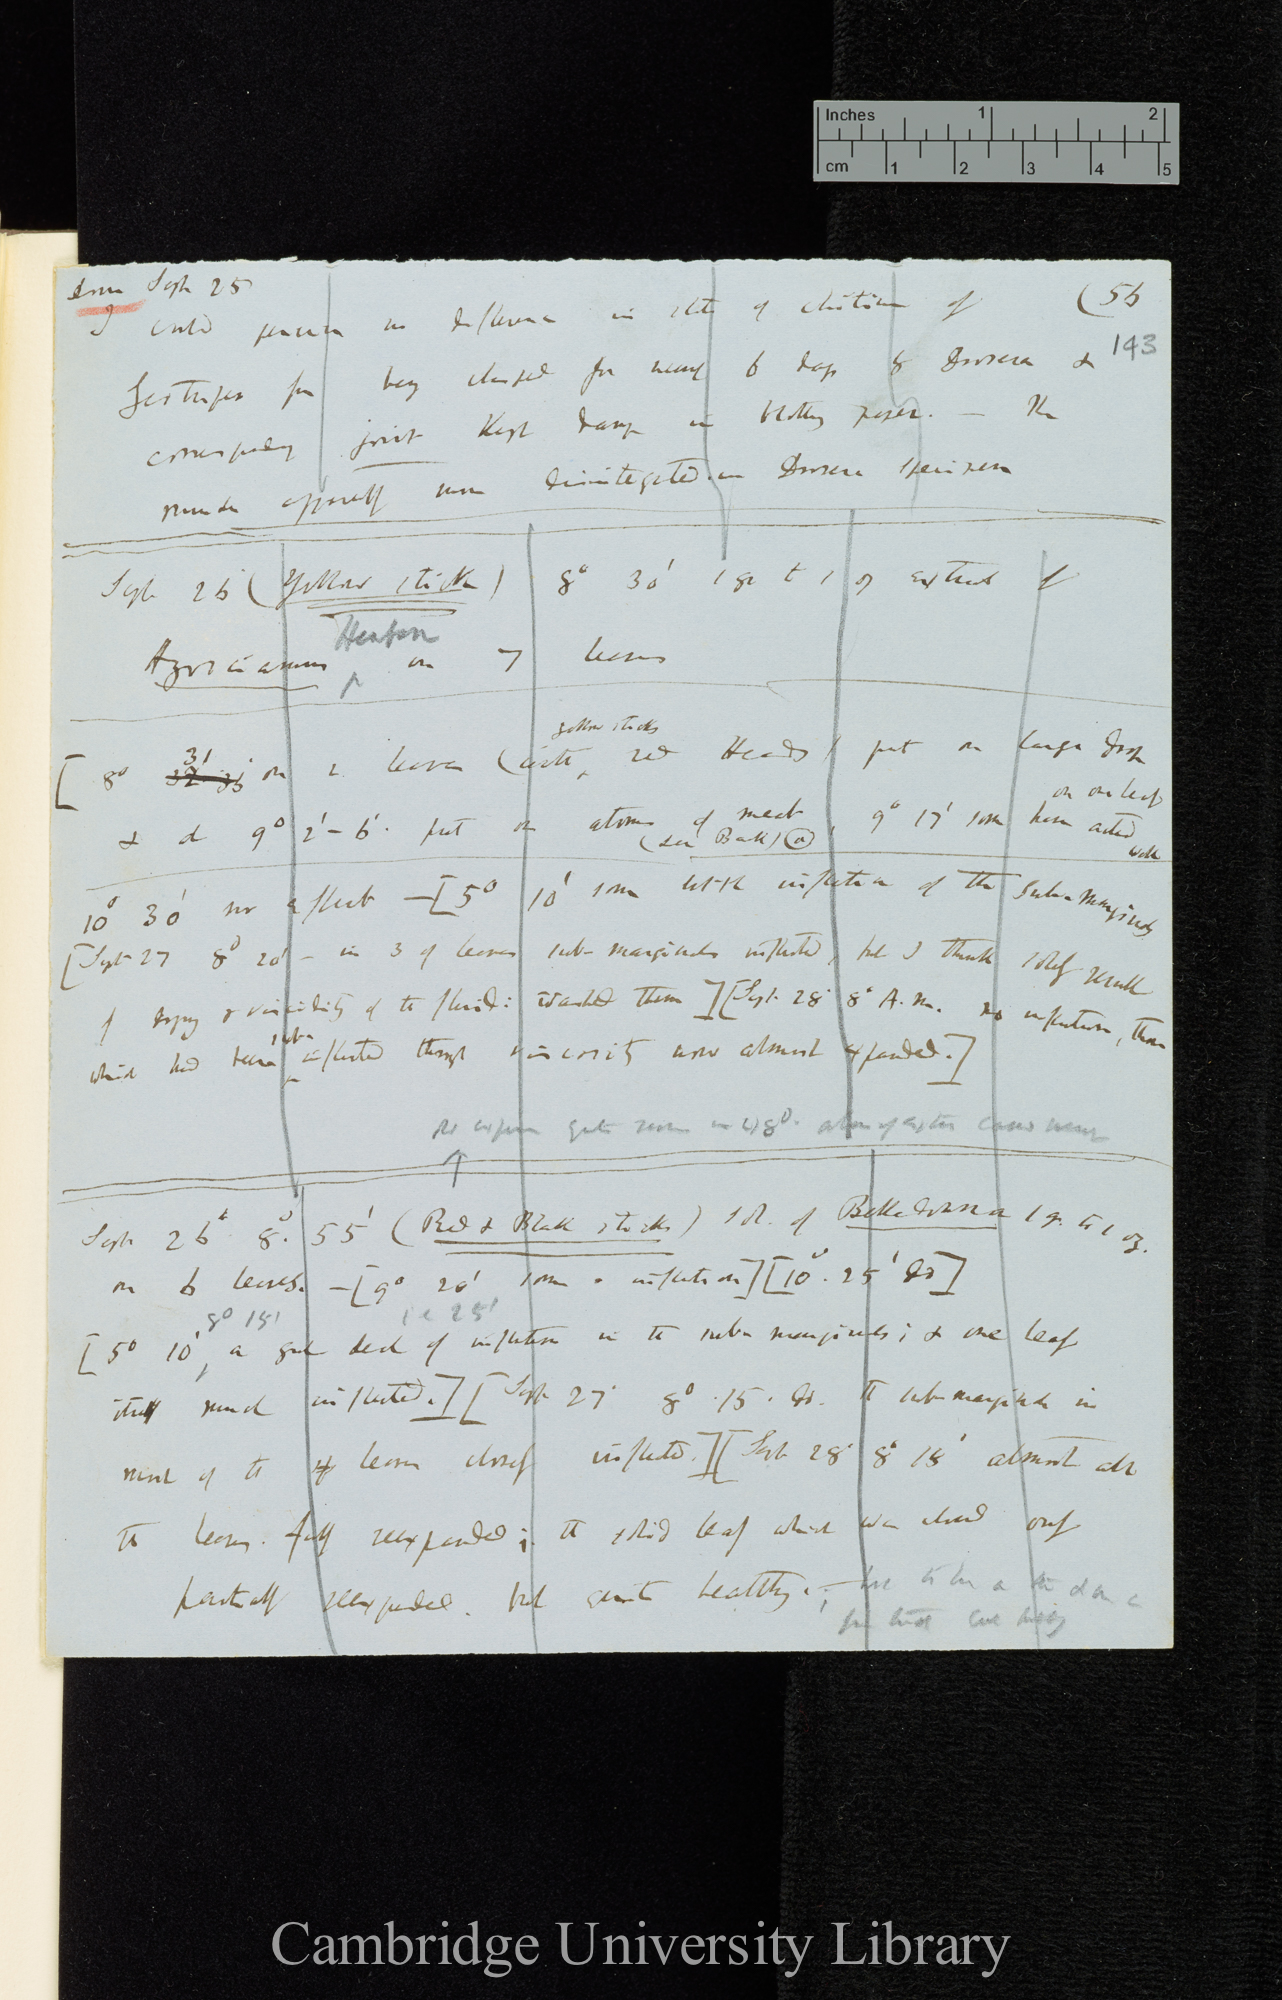 Inches 1 2
cm 1 2 3 4 5
Sept 25
(56
143
I could perceive no difference in state of chitine of
for being clasped for nearly 6 days by Drosera &
corresponding joint kept damp in blotting paper. — The
muscles apparently more disintegrated in Drosera specimen
Sept 26 (Yellow stick) 8° 30' 1 gr to 1 oz extract of
Hyoscyamus on 7 leaves
[8° 31' on 2 leaves (with yellow sticks red Heads) put on large drop
& at 9° 2'–6'. put on atoms of meat, 9° 17' some have acted
on one leaf
well
(see Back) (a)
10° 30' no effect —[5° 10' some little inflection of the submarginals
[Sept 27 8° 20' – in 3 of leaves sub-marginals inflected, but I think solely result
of drying & viscidity of the fluid: washed them][Sept. 28 8° A.m. no inflection, those
which had been sub inflected through viscosity now almost expanded.]
Sept 26 8° 55' (Red & Black sticks) sol. of Belladonna 1 gr. to 1 oz.
on 6 leaves. —[9° 20' some inflection][10°. 25' do]
8° 15' i e 25'
[5° 10', a good deal of inflection in the sub-marginals; & one leaf
itself much inflected.][Sept 27 8° 15. do. the submarginals in
most of the 4 leaves closely inflected.][Sept 28 8° 18' almost all
the leaves fully reexpanded; the third leaf which was closed only
partially reexpanded. but quite healthy.;
Cambridge University Library